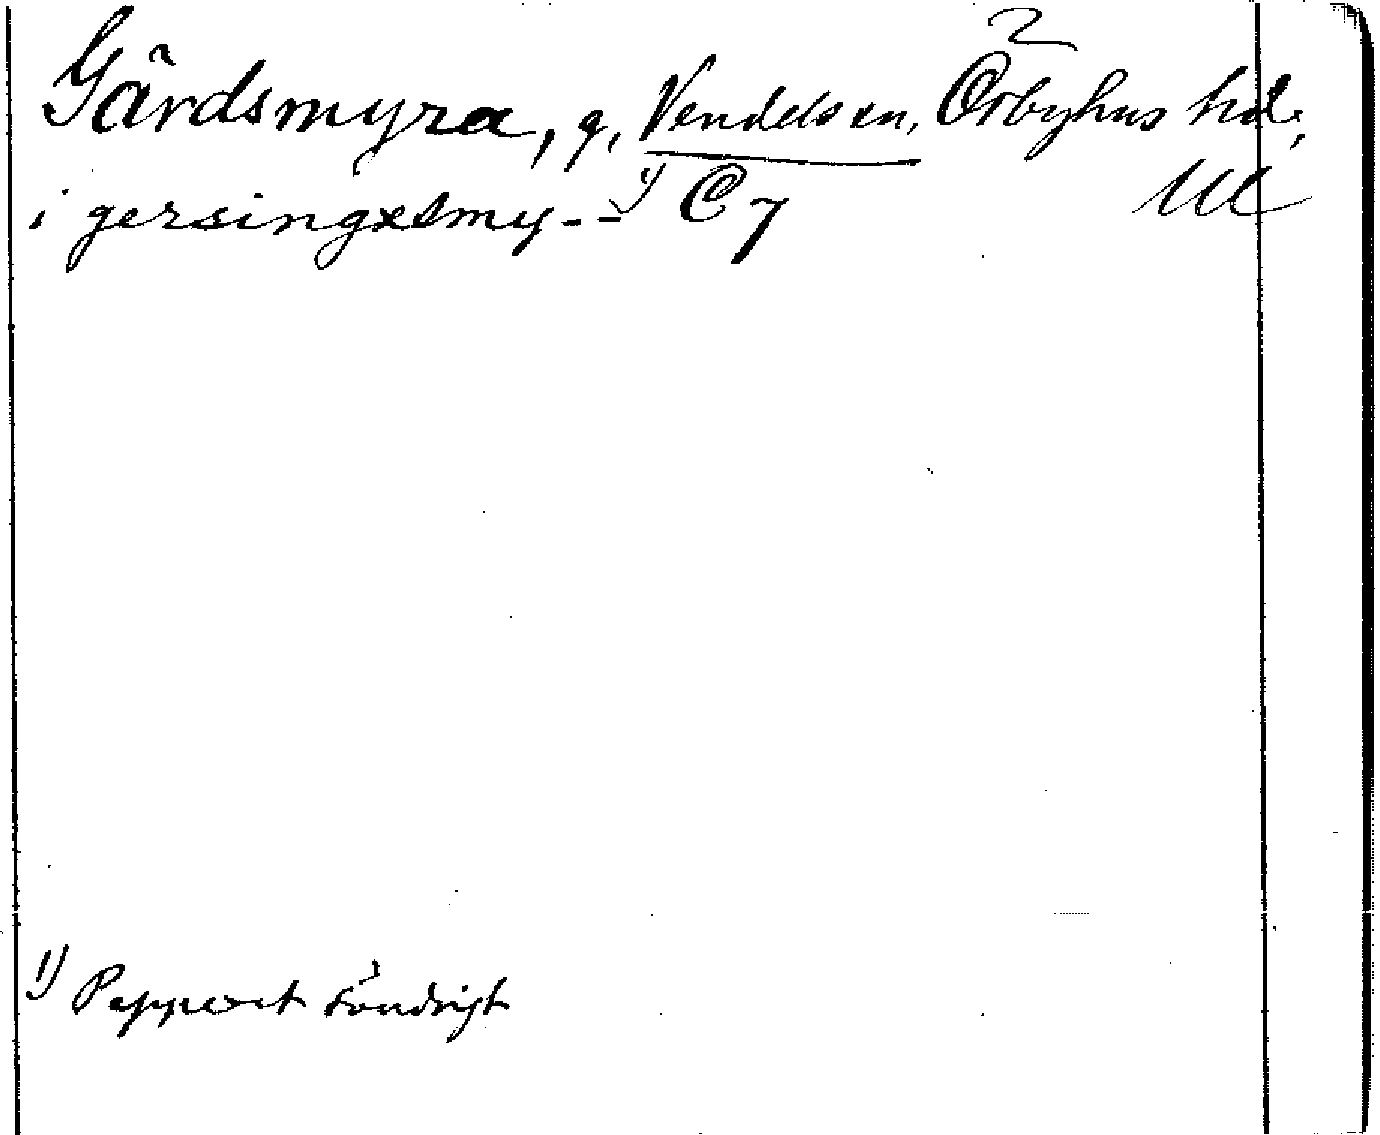 Gärdsmyra, g, Vendels sn, Örbyhus hd;
i gersingxsmy-- 1) C 7 Ul
1) Papperet söndrigt